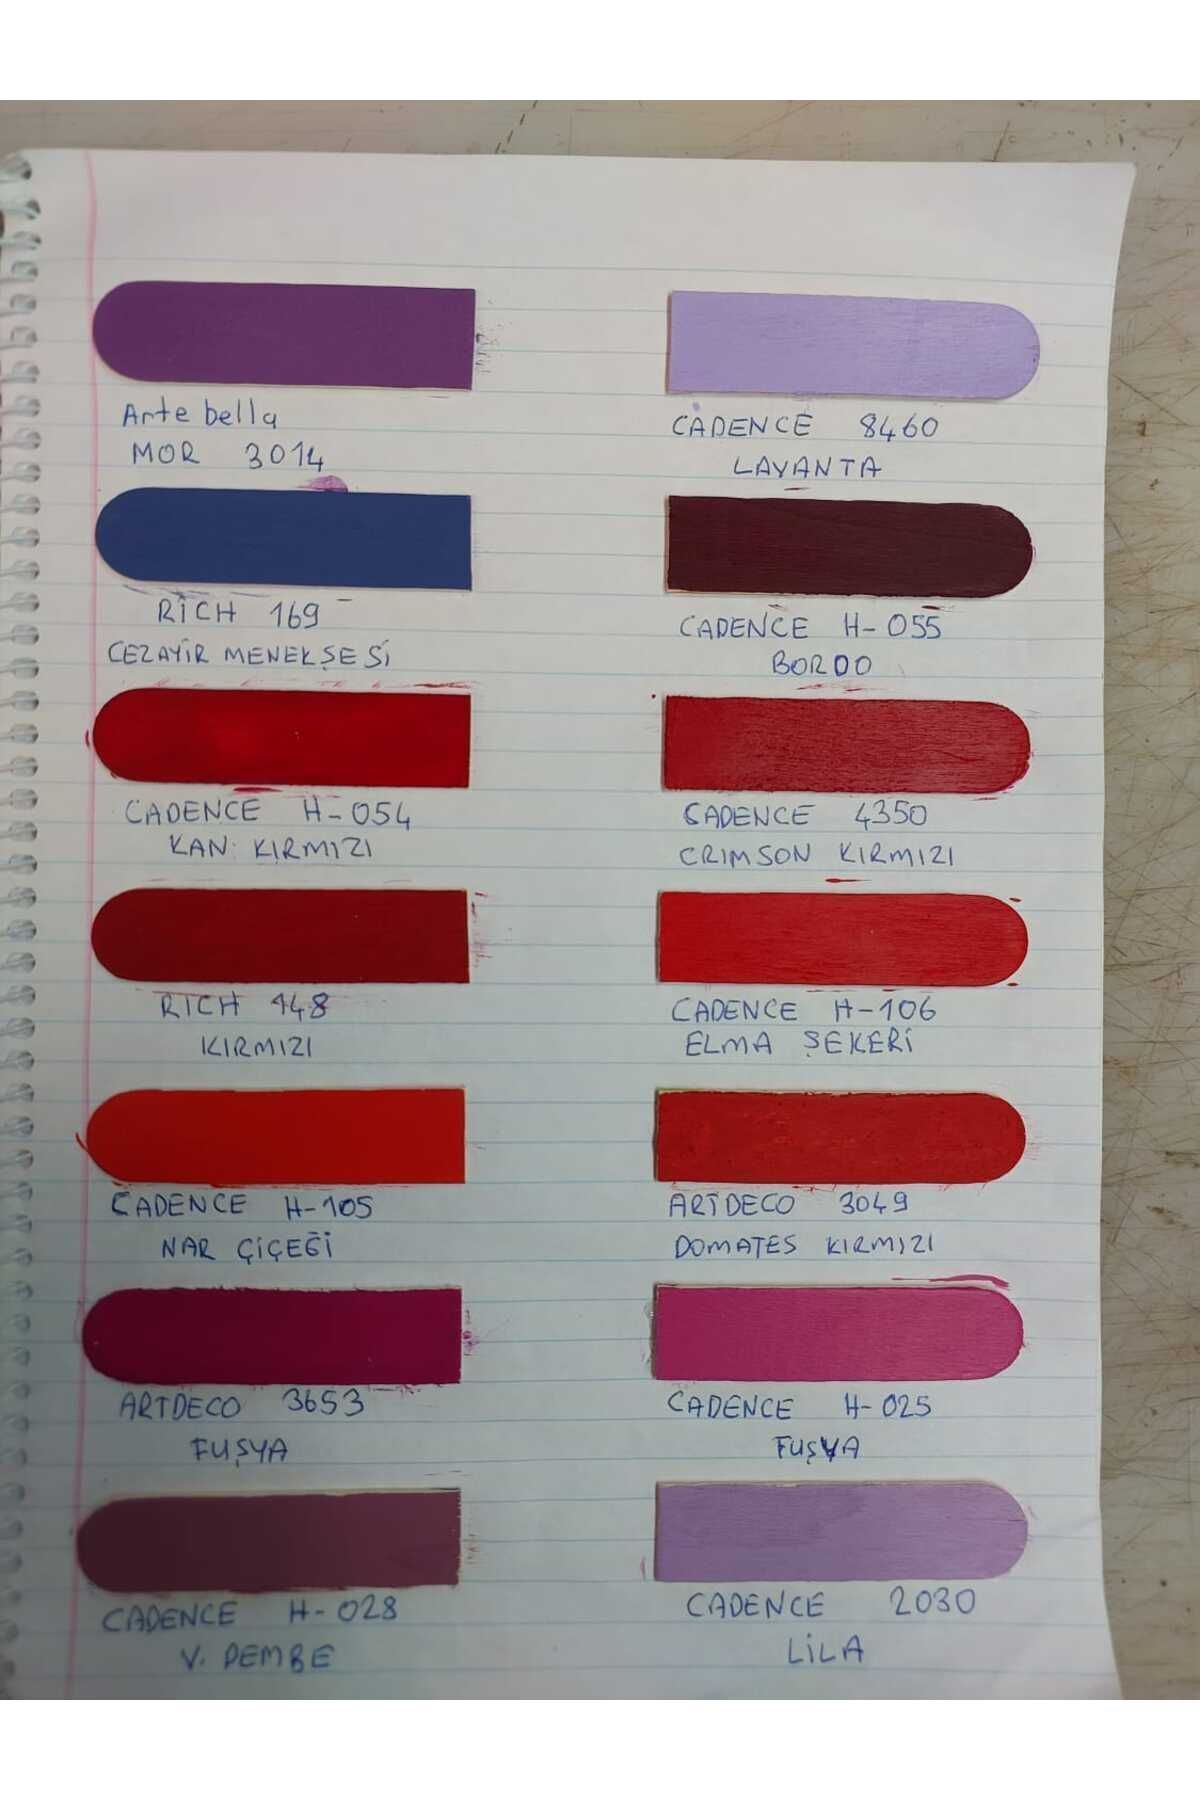 Arte bella
MOR 3014
CADENCE 8460
LAVANTA
RİCH 169
CEZAYİR MENEKŞESİ
CADENCE H-055
BORDO
CADENCE H-054
KAN KIRMIZI
CADENCE 4350
CRIMSON KIRMIZI
RICH 148
KIRMIZI
CADENCE H-106
ELMA ŞEKERİ
CADENCE H-105
NAR ÇİÇEĞİ
ARTDECO 3049
DOMATES KIRMIZI
ARTDECO 3653
FUŞYA
CADENCE H-025
FUŞYA
CADENCE H-028
V. PEMBE
CADENCE 2030
LİLA